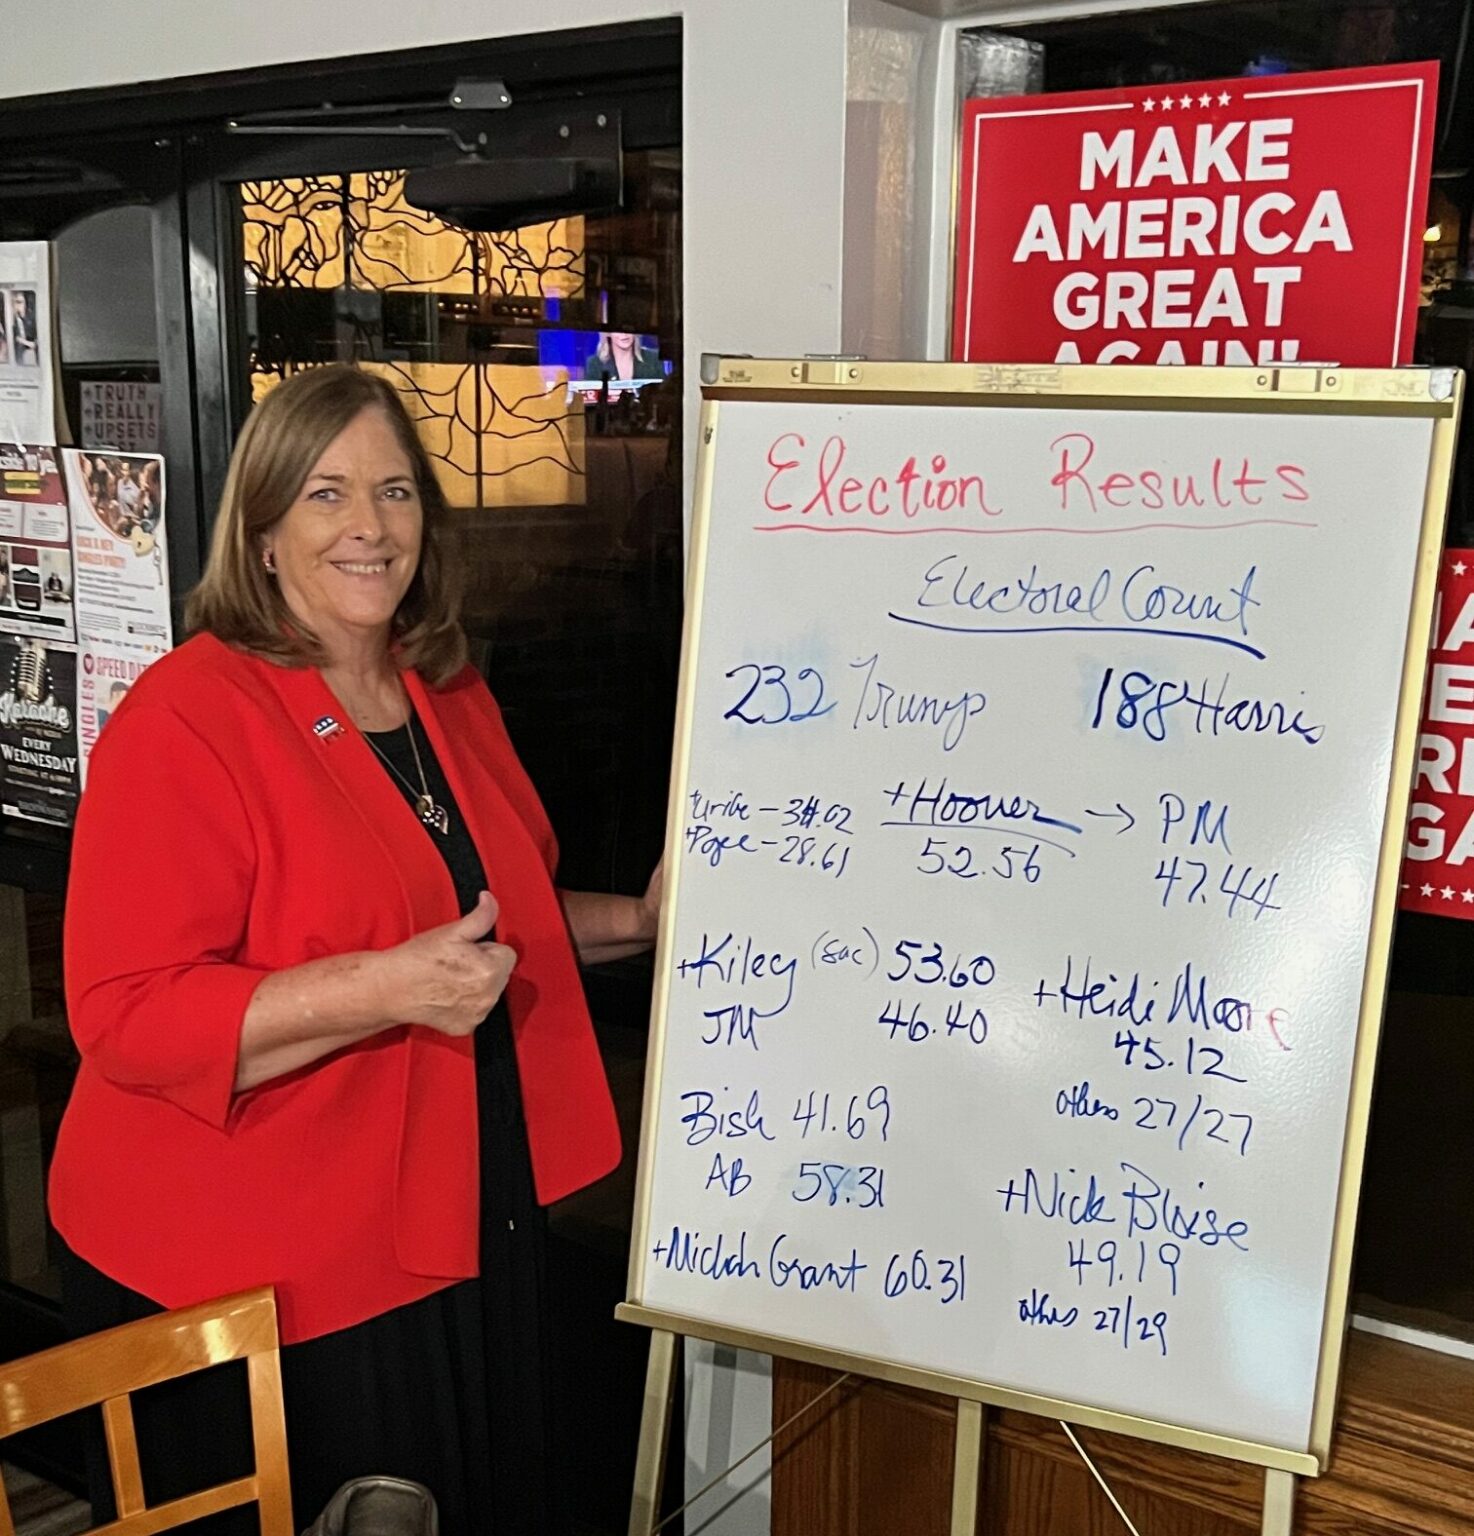 MAKE
AMERICA
GREAT
AGAIN!
TRUTH
REALLY
UPSETS
SPEED DAT
SINGLES
Karaoke
EVERY
WEDNESDAY
Election Results
Electoral Count
232 Trump 188 Harris
+Uribe - 34.02
+Pogee - 28.61
+Hoover → PM
52.56 47.44
+Kiley (Sac) 53.60
JM 46.40
+Heidi Moore
45.12
others 27/27
Bish 41.69
AB 58.31
+Nick Bloise
49.19
others 27/29
+Michah Grant 60.31